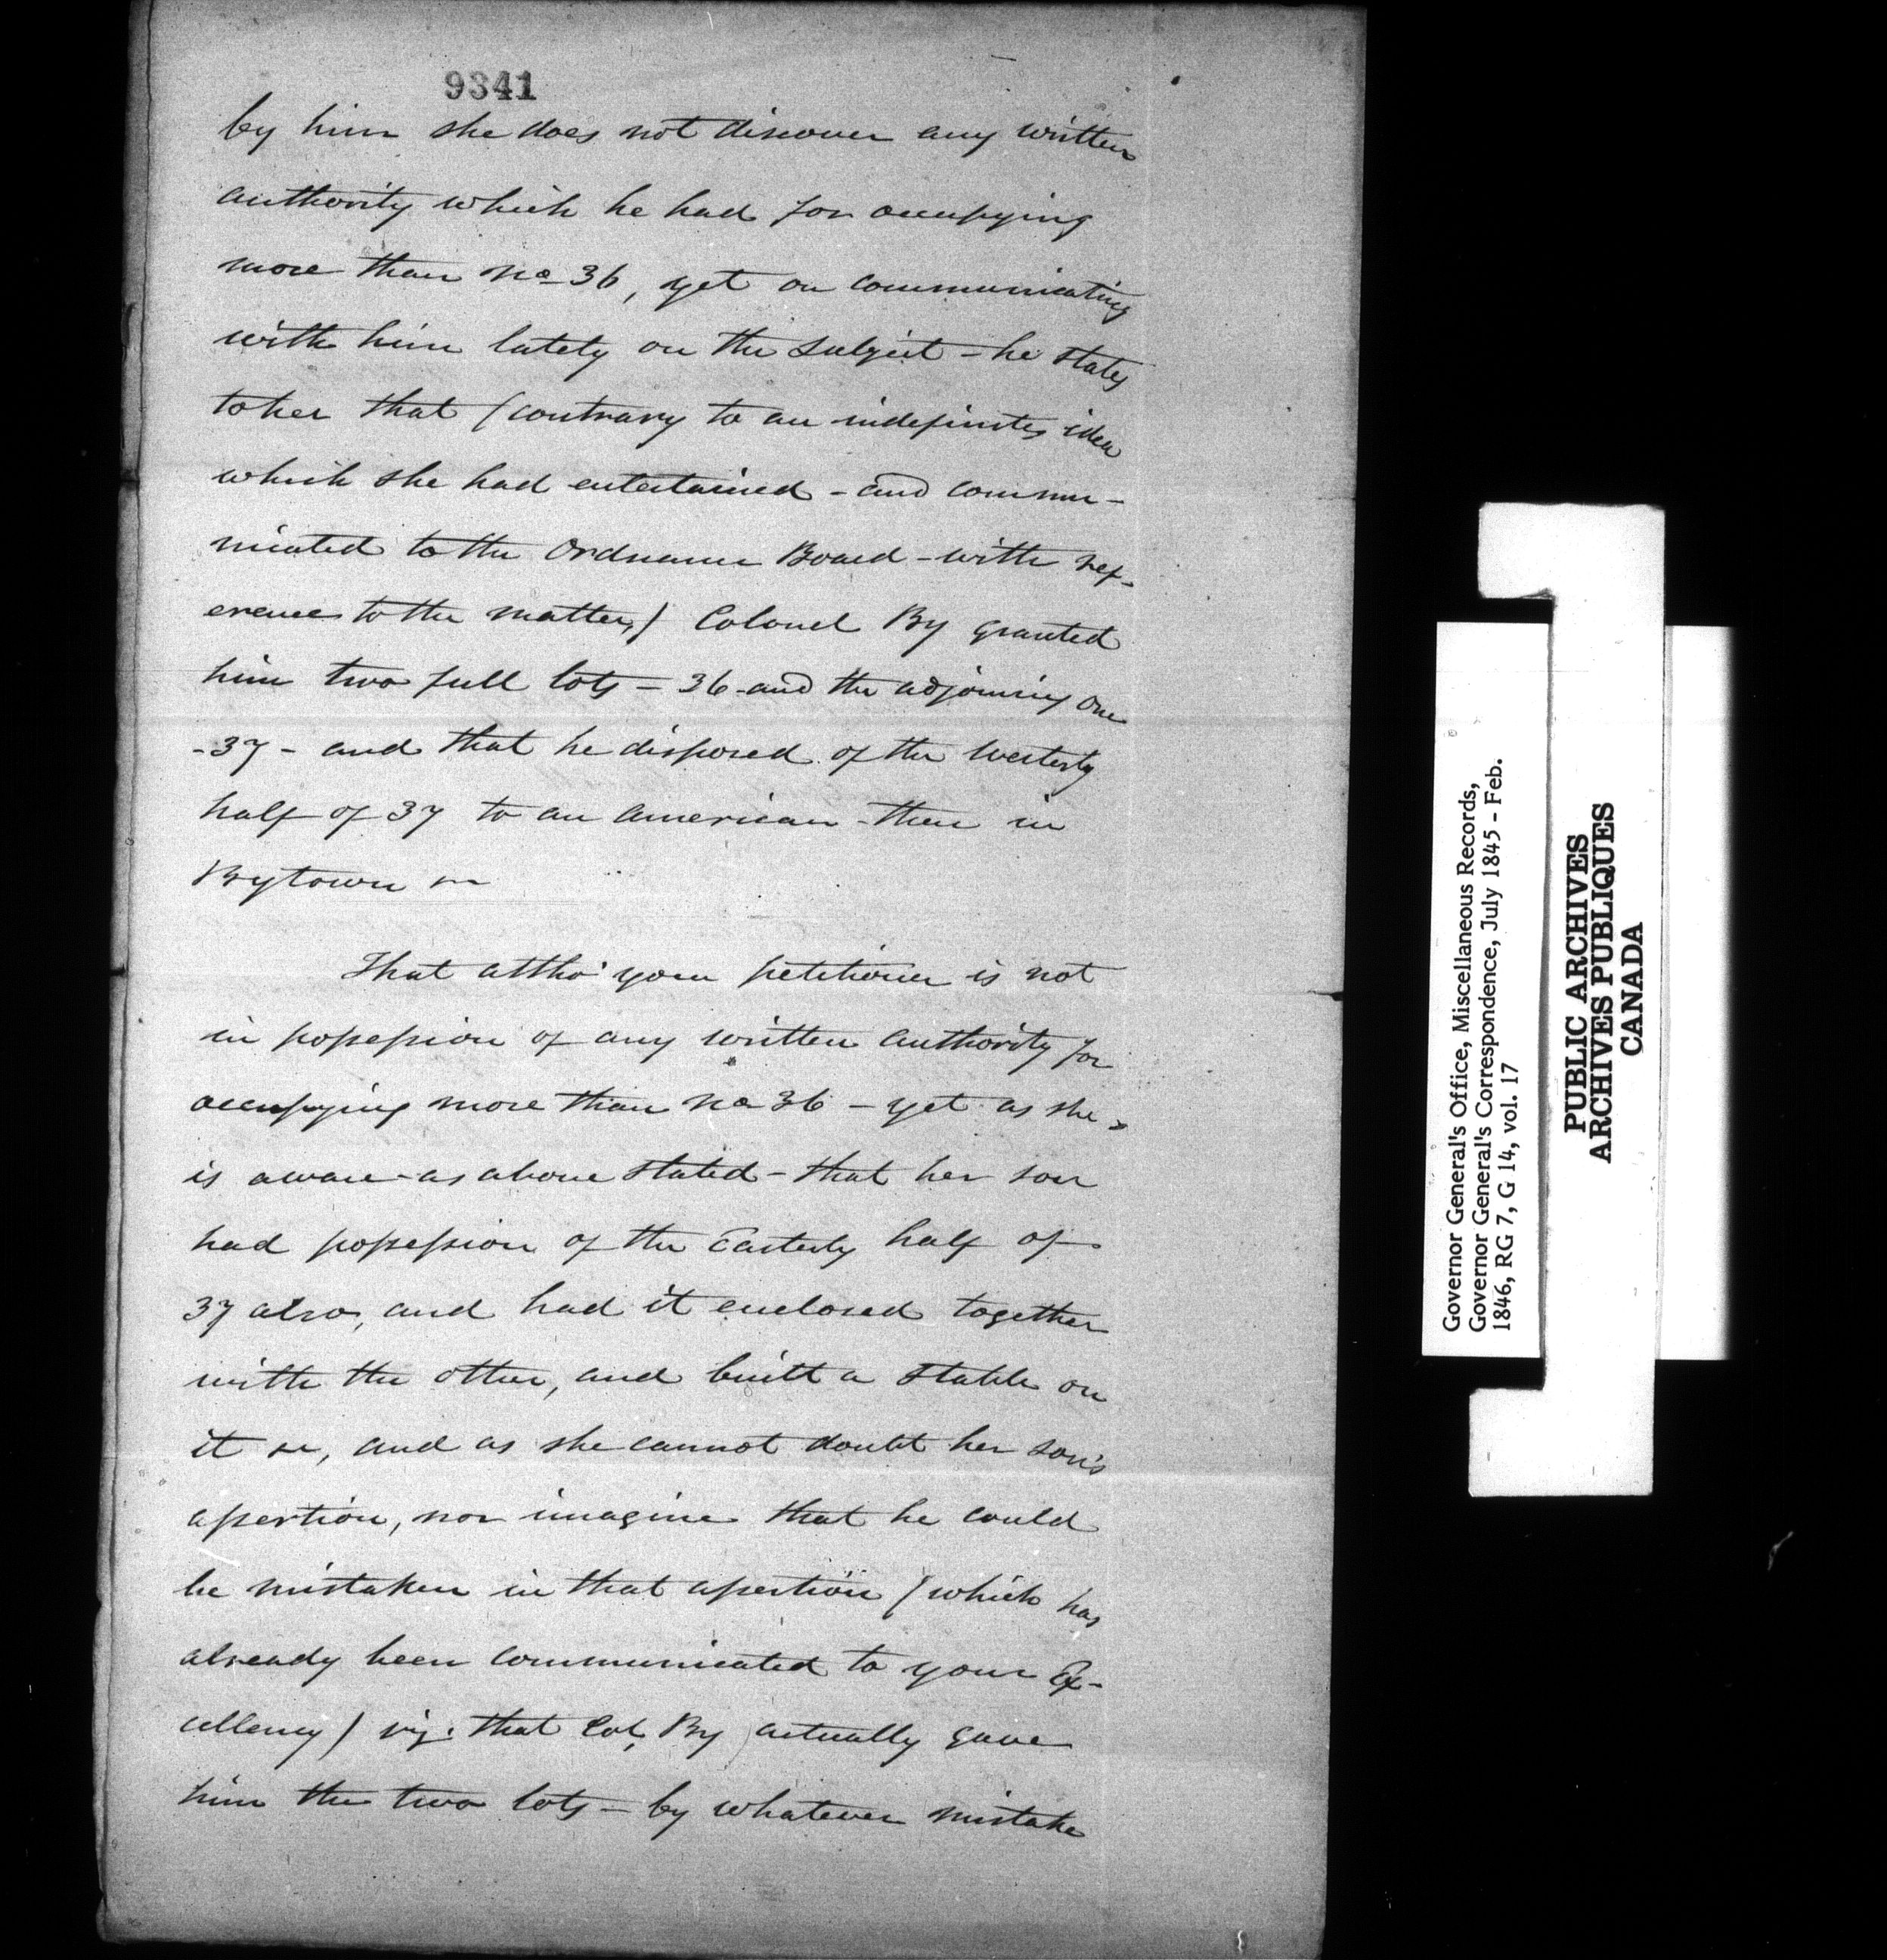 9341
by him she does not discover any written
authority which he had for occupying
more than No 36, yet on communicating
with him lately on the subject - he states
to her that (contrary to an indefinite idea
which she had entertained - and commu-
nicated to the Ordnance Board - with ref-
erence to the matter,) Colonel By granted
him two full lots - 36 and the adjoining one
- 37 - and that he disposed of the Westerly
half of 37 to an American - then in
Bytown
That altho' your petitioner is not
in possession of any written authority for
occupying more than No 36 - yet as she
is aware - as above stated - that her son
had possession of the Easterly half of
37 also, and had it enclosed together
with the other, and built a stable on
it, and as she cannot doubt her son's
assertion, nor imagine that he could
be mistaken in that assertion (which has
already been communicated to your Ex-
cellency) viz. that Col. By actually gave
him the two lots - by whatever mistake
Governor General's Office, Miscellaneous Records,
Governor General's Correspondence, July 1845 - Feb.
1846, RG 7, G 14, vol. 17
PUBLIC ARCHIVES
ARCHIVES PUBLIQUES
CANADA